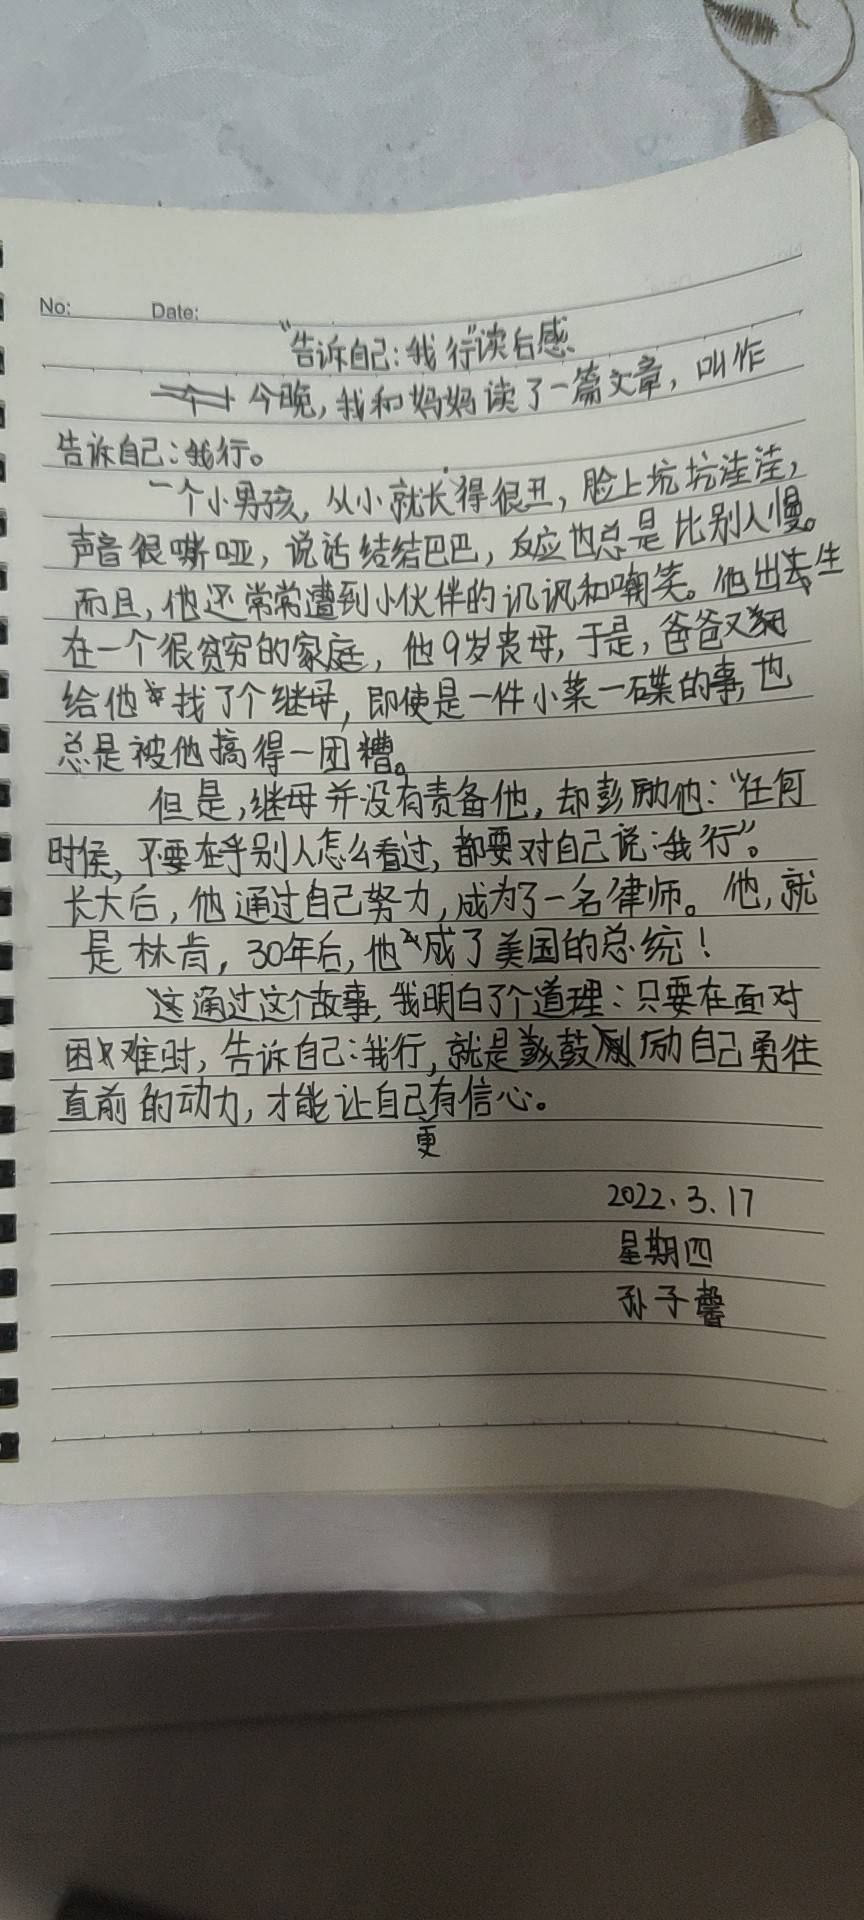 No:
Date:
“告诉自己:我行”读后感
今晚,我和妈妈读了一篇文章,叫作
告诉自己:我行。
一个小男孩,从小就长得很丑,脸上坑坑洼洼,
声音很嘶哑,说话结结巴巴,反应也总是比别人慢。
而且,他还常常遭到小伙伴的讥讽和嘲笑。他出生
在一个很贫穷的家庭,他9岁丧母,于是,爸爸又
给他找了个继母,即使是一件小菜一碟的事,也
总是被他搞得一团糟。
但是,继母并没有责备他,却励他:“任何
时候,不要在乎别人怎么看过,都要对自己说:我行”。
长大后,他通过自己努力,成为了一名律师。他,就
是林肯,30年后,他成了美国的总统!
通过这个故事,我明白了个道理:只要在面对
困难时,告诉自己:我行,就是鼓励自己勇往
直前的动力,才能让自己更有信心。
2022.3.17
星期四
孙子馨